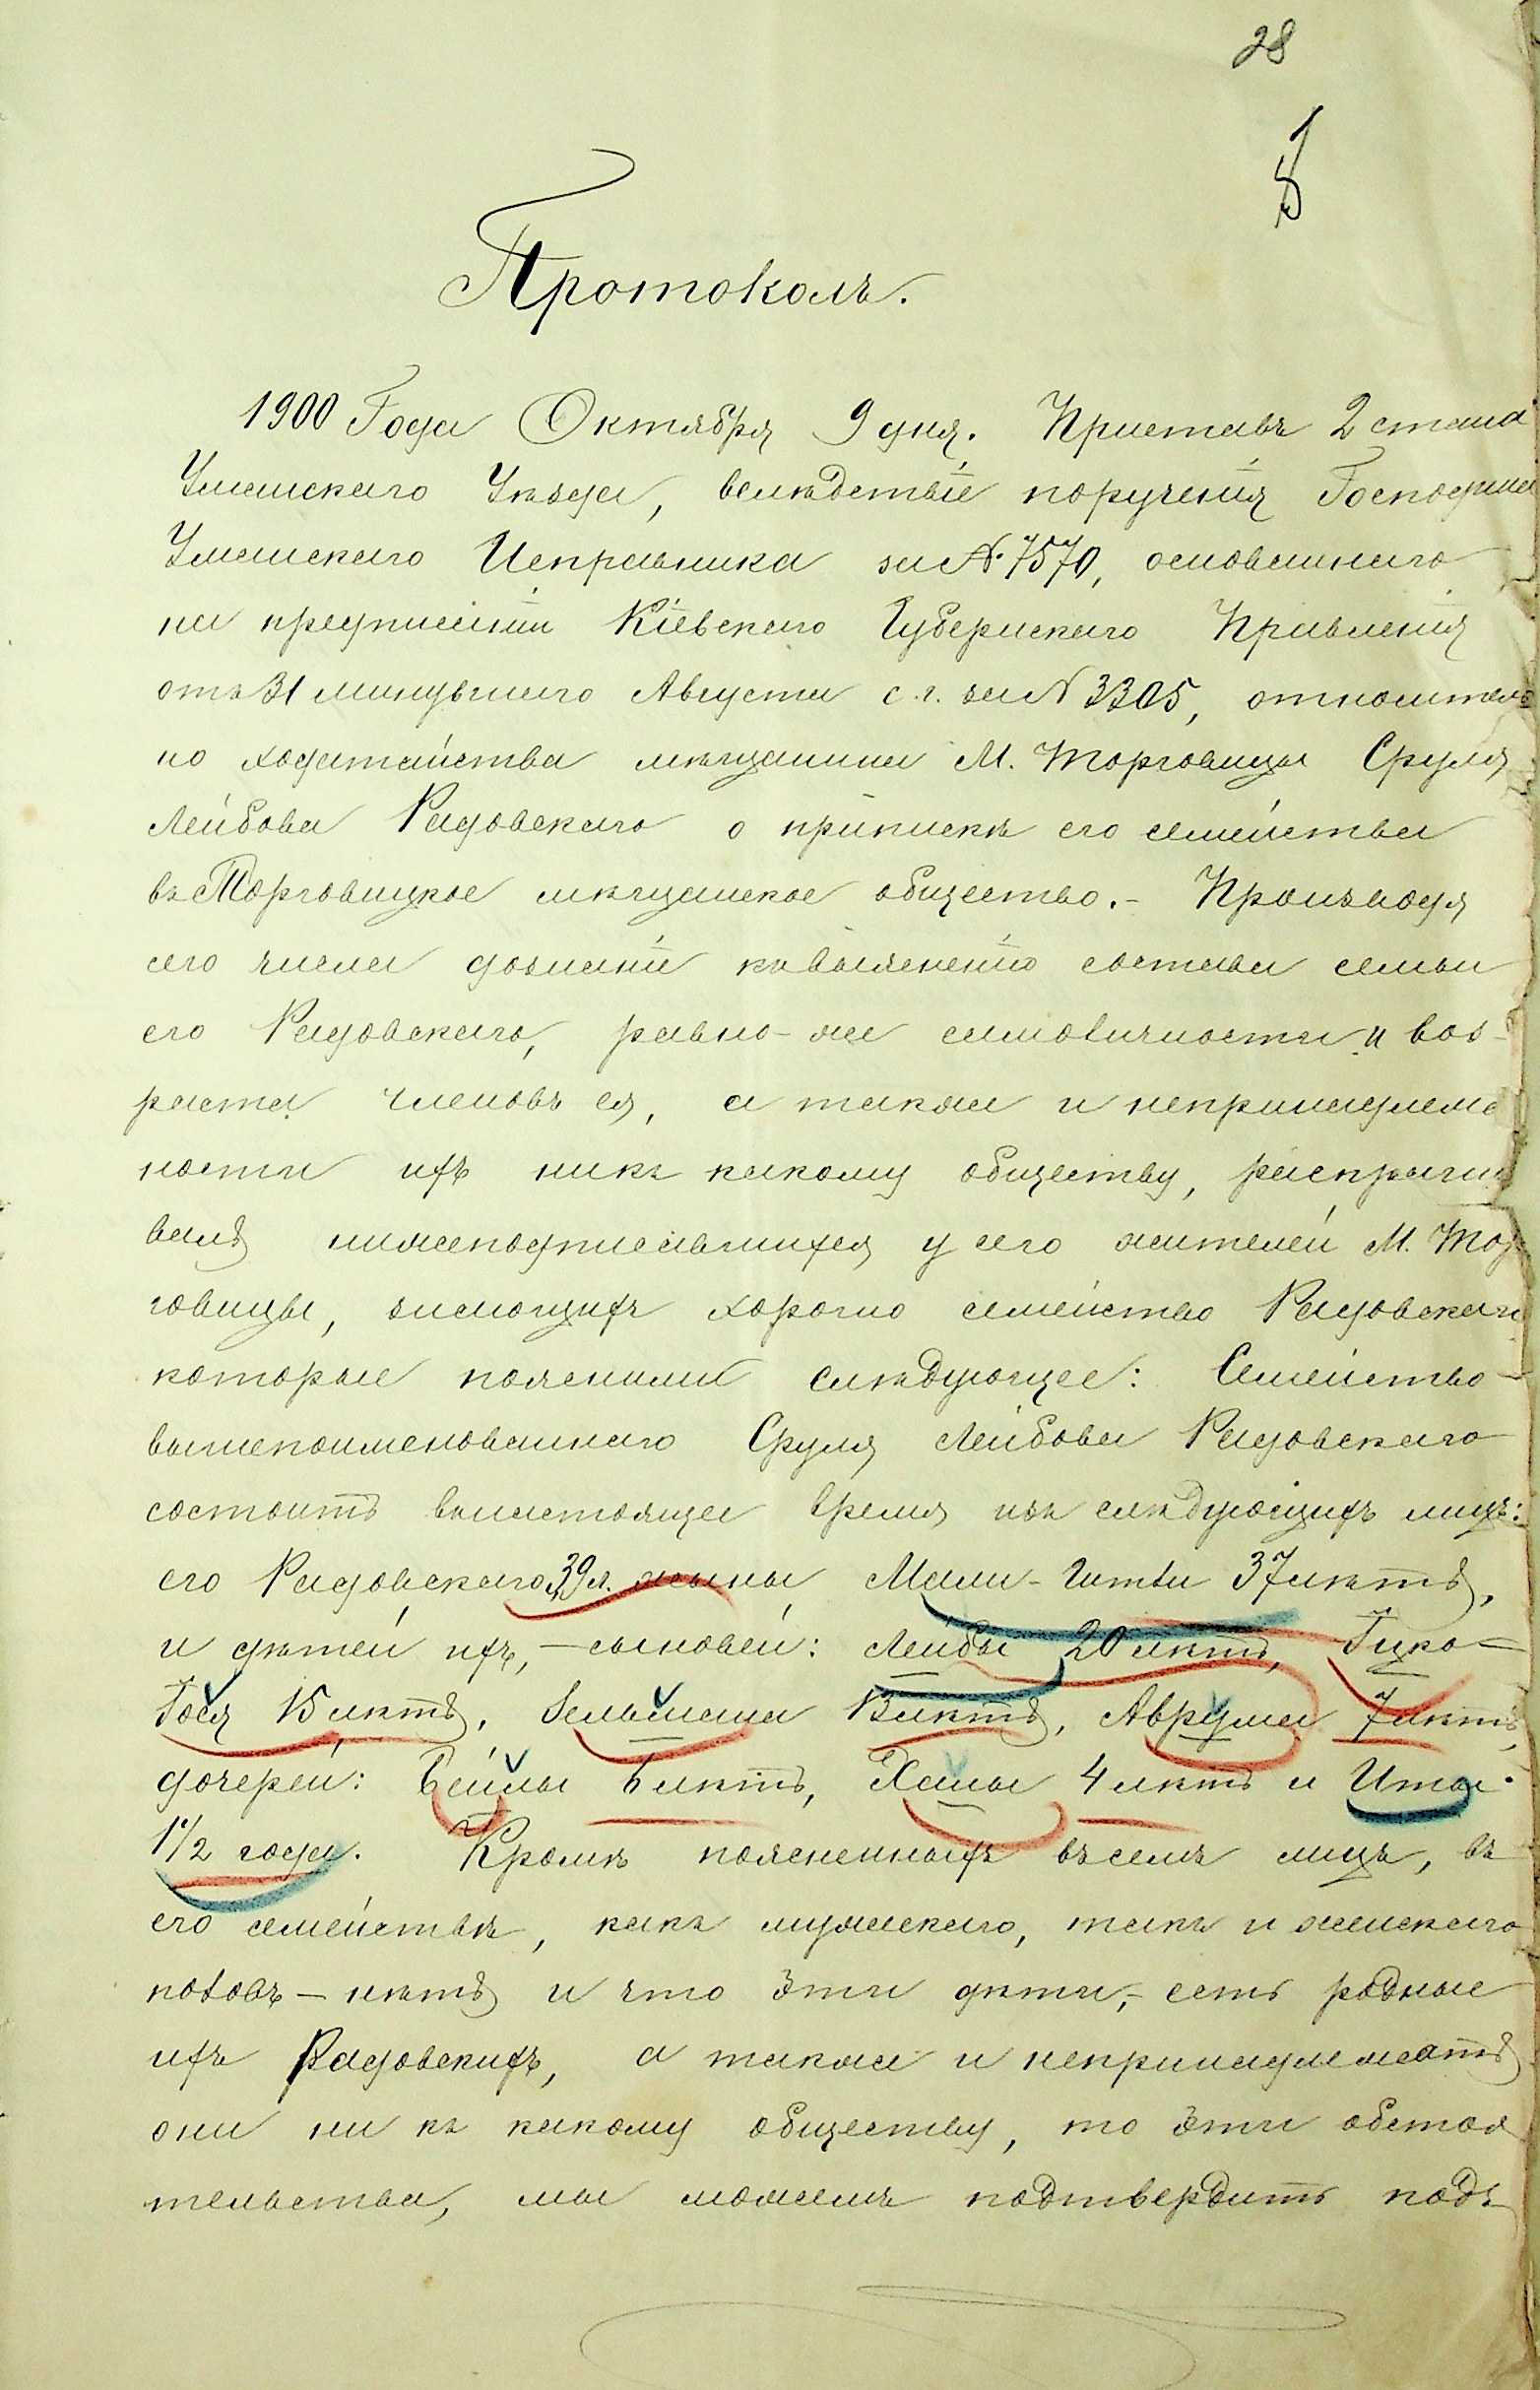 28
5
Протоколъ.
1900 Года Октября 9 дня. Приставъ 2 стана
Уманскаго Уѣзда, вслѣдствіе порученія Господина
Уманскаго Исправника за № 7570, основаннаго
на предписаніи Кіевскаго Губернскаго Правленія
отъ 31 минувшаго Августа с.г. за № 3305, относитель
но ходатайства мѣщанина М. Торговицы Сруля
Лейбова Радовскаго о припискѣ его семейства
въ Торговицкое мѣщанское общество.- Производя
сего числа дознаніе къ выясненію состава семьи
его Радовскаго, равно-же самоличности и воз-
раста членовъ ея, а также и непринадлеж
ности ихъ ни къ какому обществу, распраши
валъ нижеподписавшихся у сего жителей М. Тор
говицы, знающихъ хорошо семейство Радовскаго
которые пояснили слѣдующее: Семейство
вышепоименованнаго Сруля Лейбова Радовскаго
состоитъ въ настоящее время изъ слѣдующихъ лицъ:
его Радовскаго 39 л. жены Мали-Гитли 37 лѣтъ,
и дѣтей ихъ, — сыновей: Лейбы 20 лѣтъ, Ицко-
Гося 15 лѣтъ, Зельмана 13 лѣтъ, Аврума 7 лѣтъ,
дочерей: Бейлы 6 лѣтъ, Ханы 4 лѣтъ и Иты
1 1/2 года. Кромѣ поясненныхъ въ семъ лицъ, въ
его семействѣ, какъ мужскаго, такъ и женскаго
половъ — нѣтъ и что эти дѣти,- есть родные
ихъ Радовскихъ, а также и непринадлежатъ
они ни къ какому обществу, то эти обстоя
тельства, мы можемъ подтвердить подъ